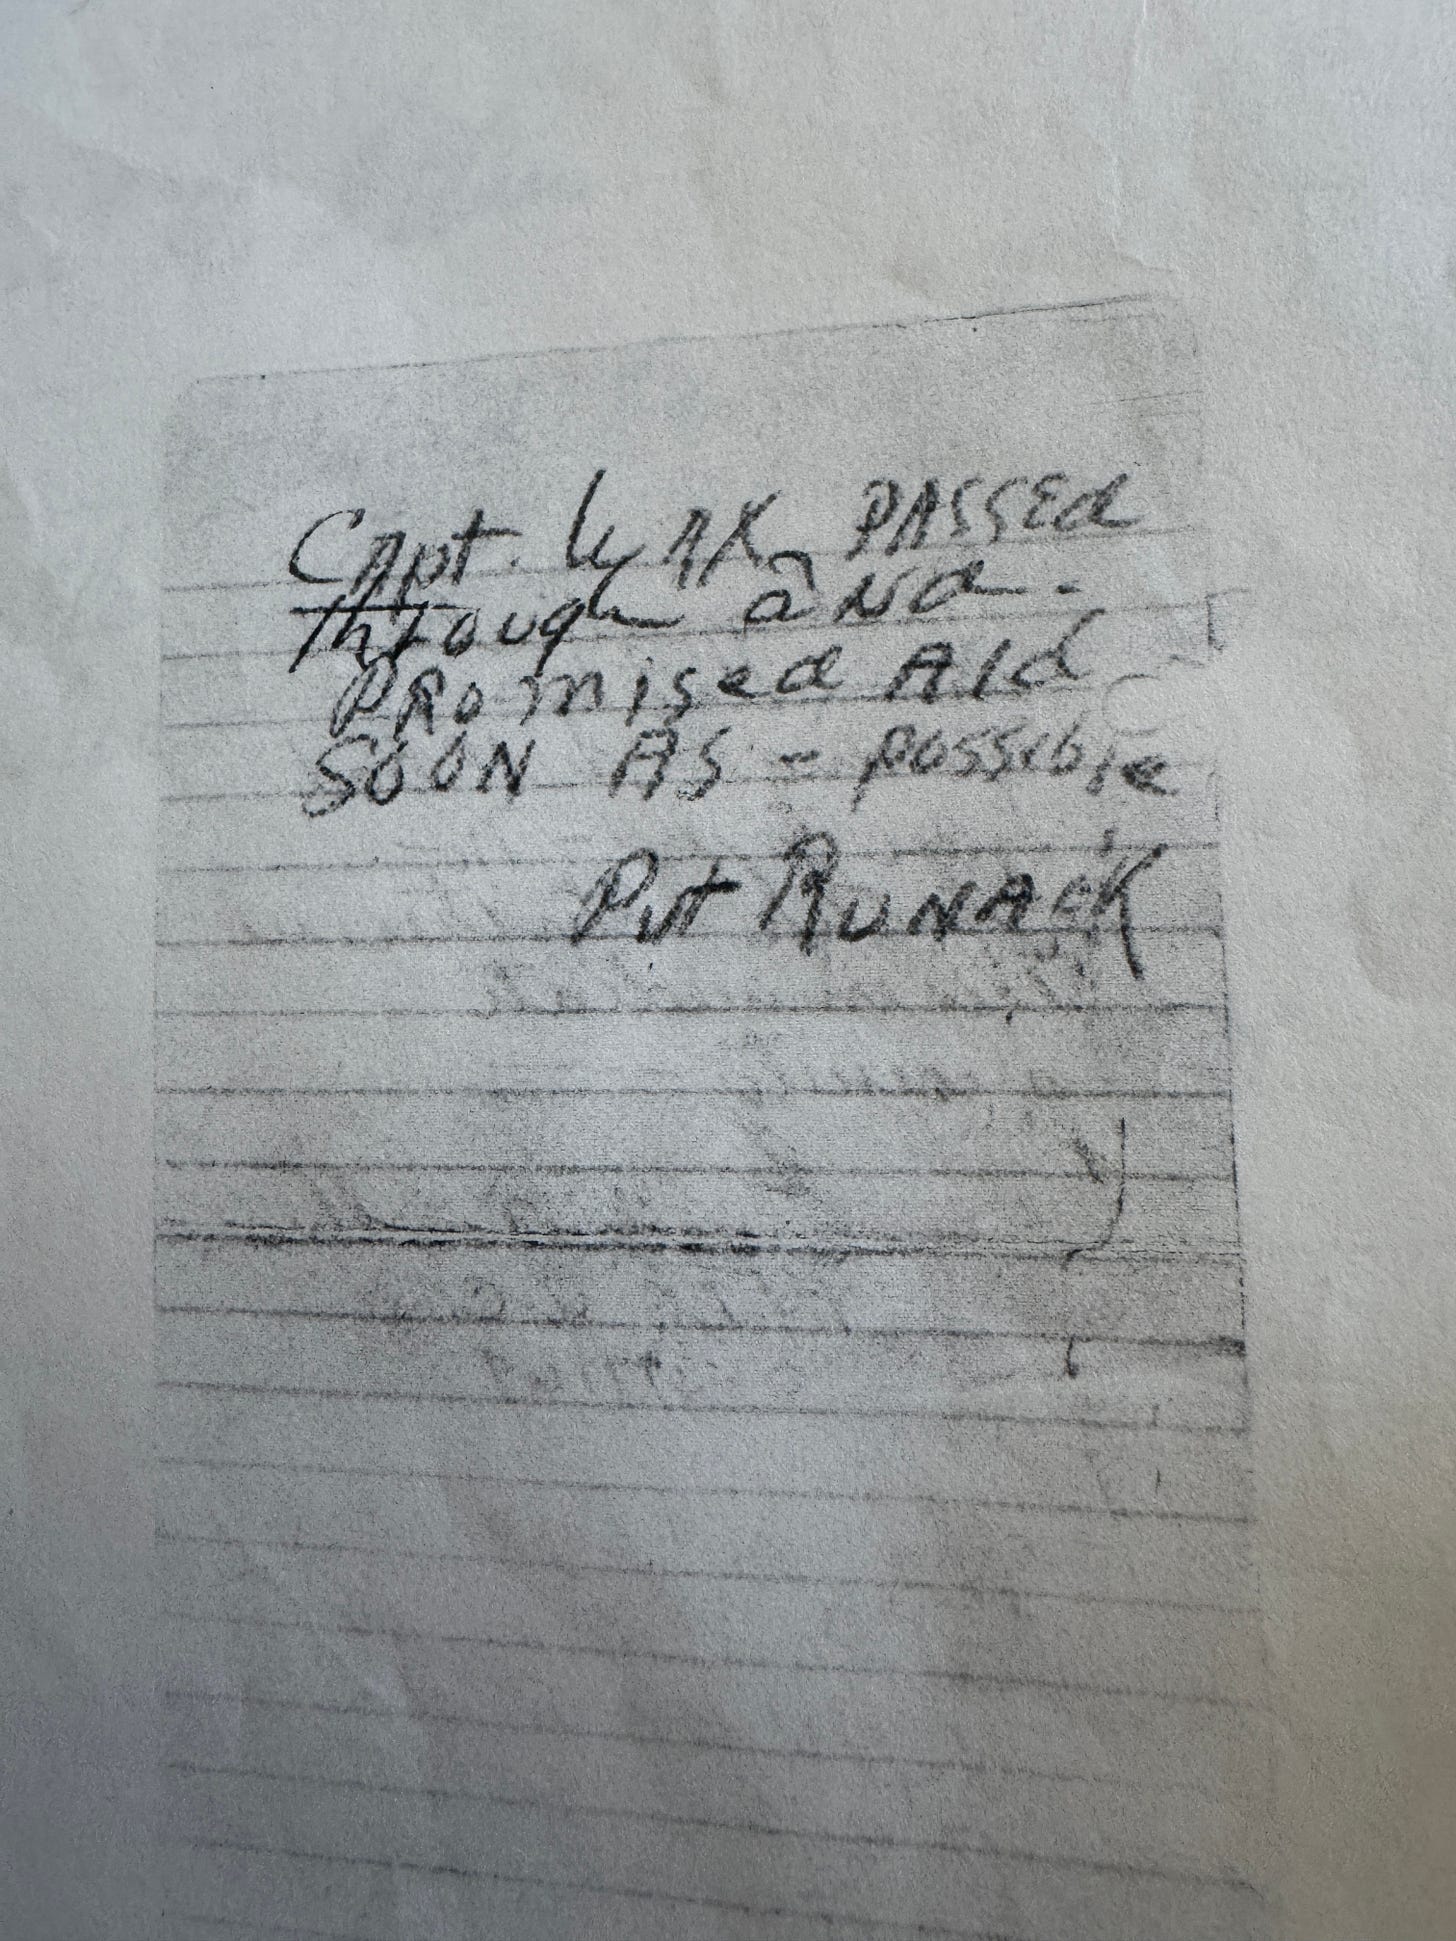 CApt. WAX PASSEd
through aNd -
PROmised AId
SOON AS - possible
Pvt RUNAcK